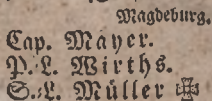 Magdeburg.
Cap. Mayer.
P.L. Wirths.
S.L. Müller